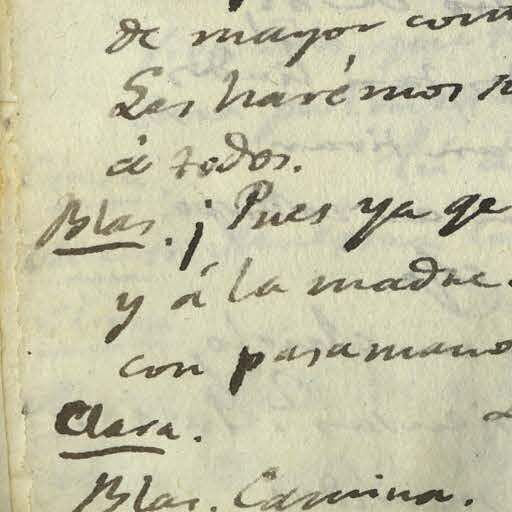 de mayor con
Les harémos
á todos.
Blas. ¡Pues ya qe
y á la madre.
con pasamano
Clara.
Blas. Camina.